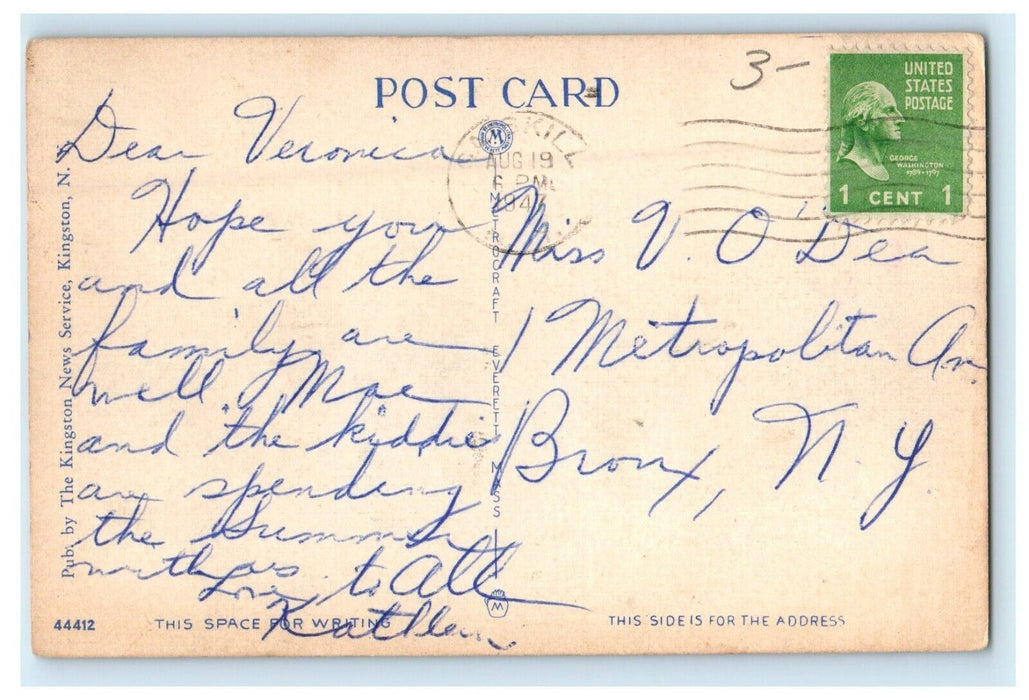 POST CARD
3-
UNITED
STATES
POSTAGE
GEORGE
WASHINGTON
1789-1797
1 CENT 1
AUG 19
6 PM
Dear Veronica
Hope you
and all the
family are
well Mae
and the kiddies
are spending
the Summer
with us
Love to All
Kathleen
Miss V. O'Dea
1 Metropolitan Av.
Bronx, N. Y.
Pub. by The Kingston News Service, Kingston, N. Y.
M
METROCRAFT EVERETT, MASS
M
44412
THIS SPACE FOR WRITING
THIS SIDE IS FOR THE ADDRESS